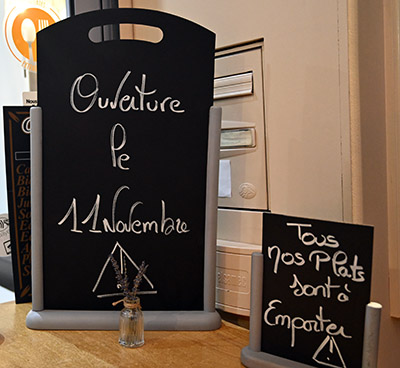 Ouverture
le
11 Novembre
Tous
nos Plats
sont à
Emporter